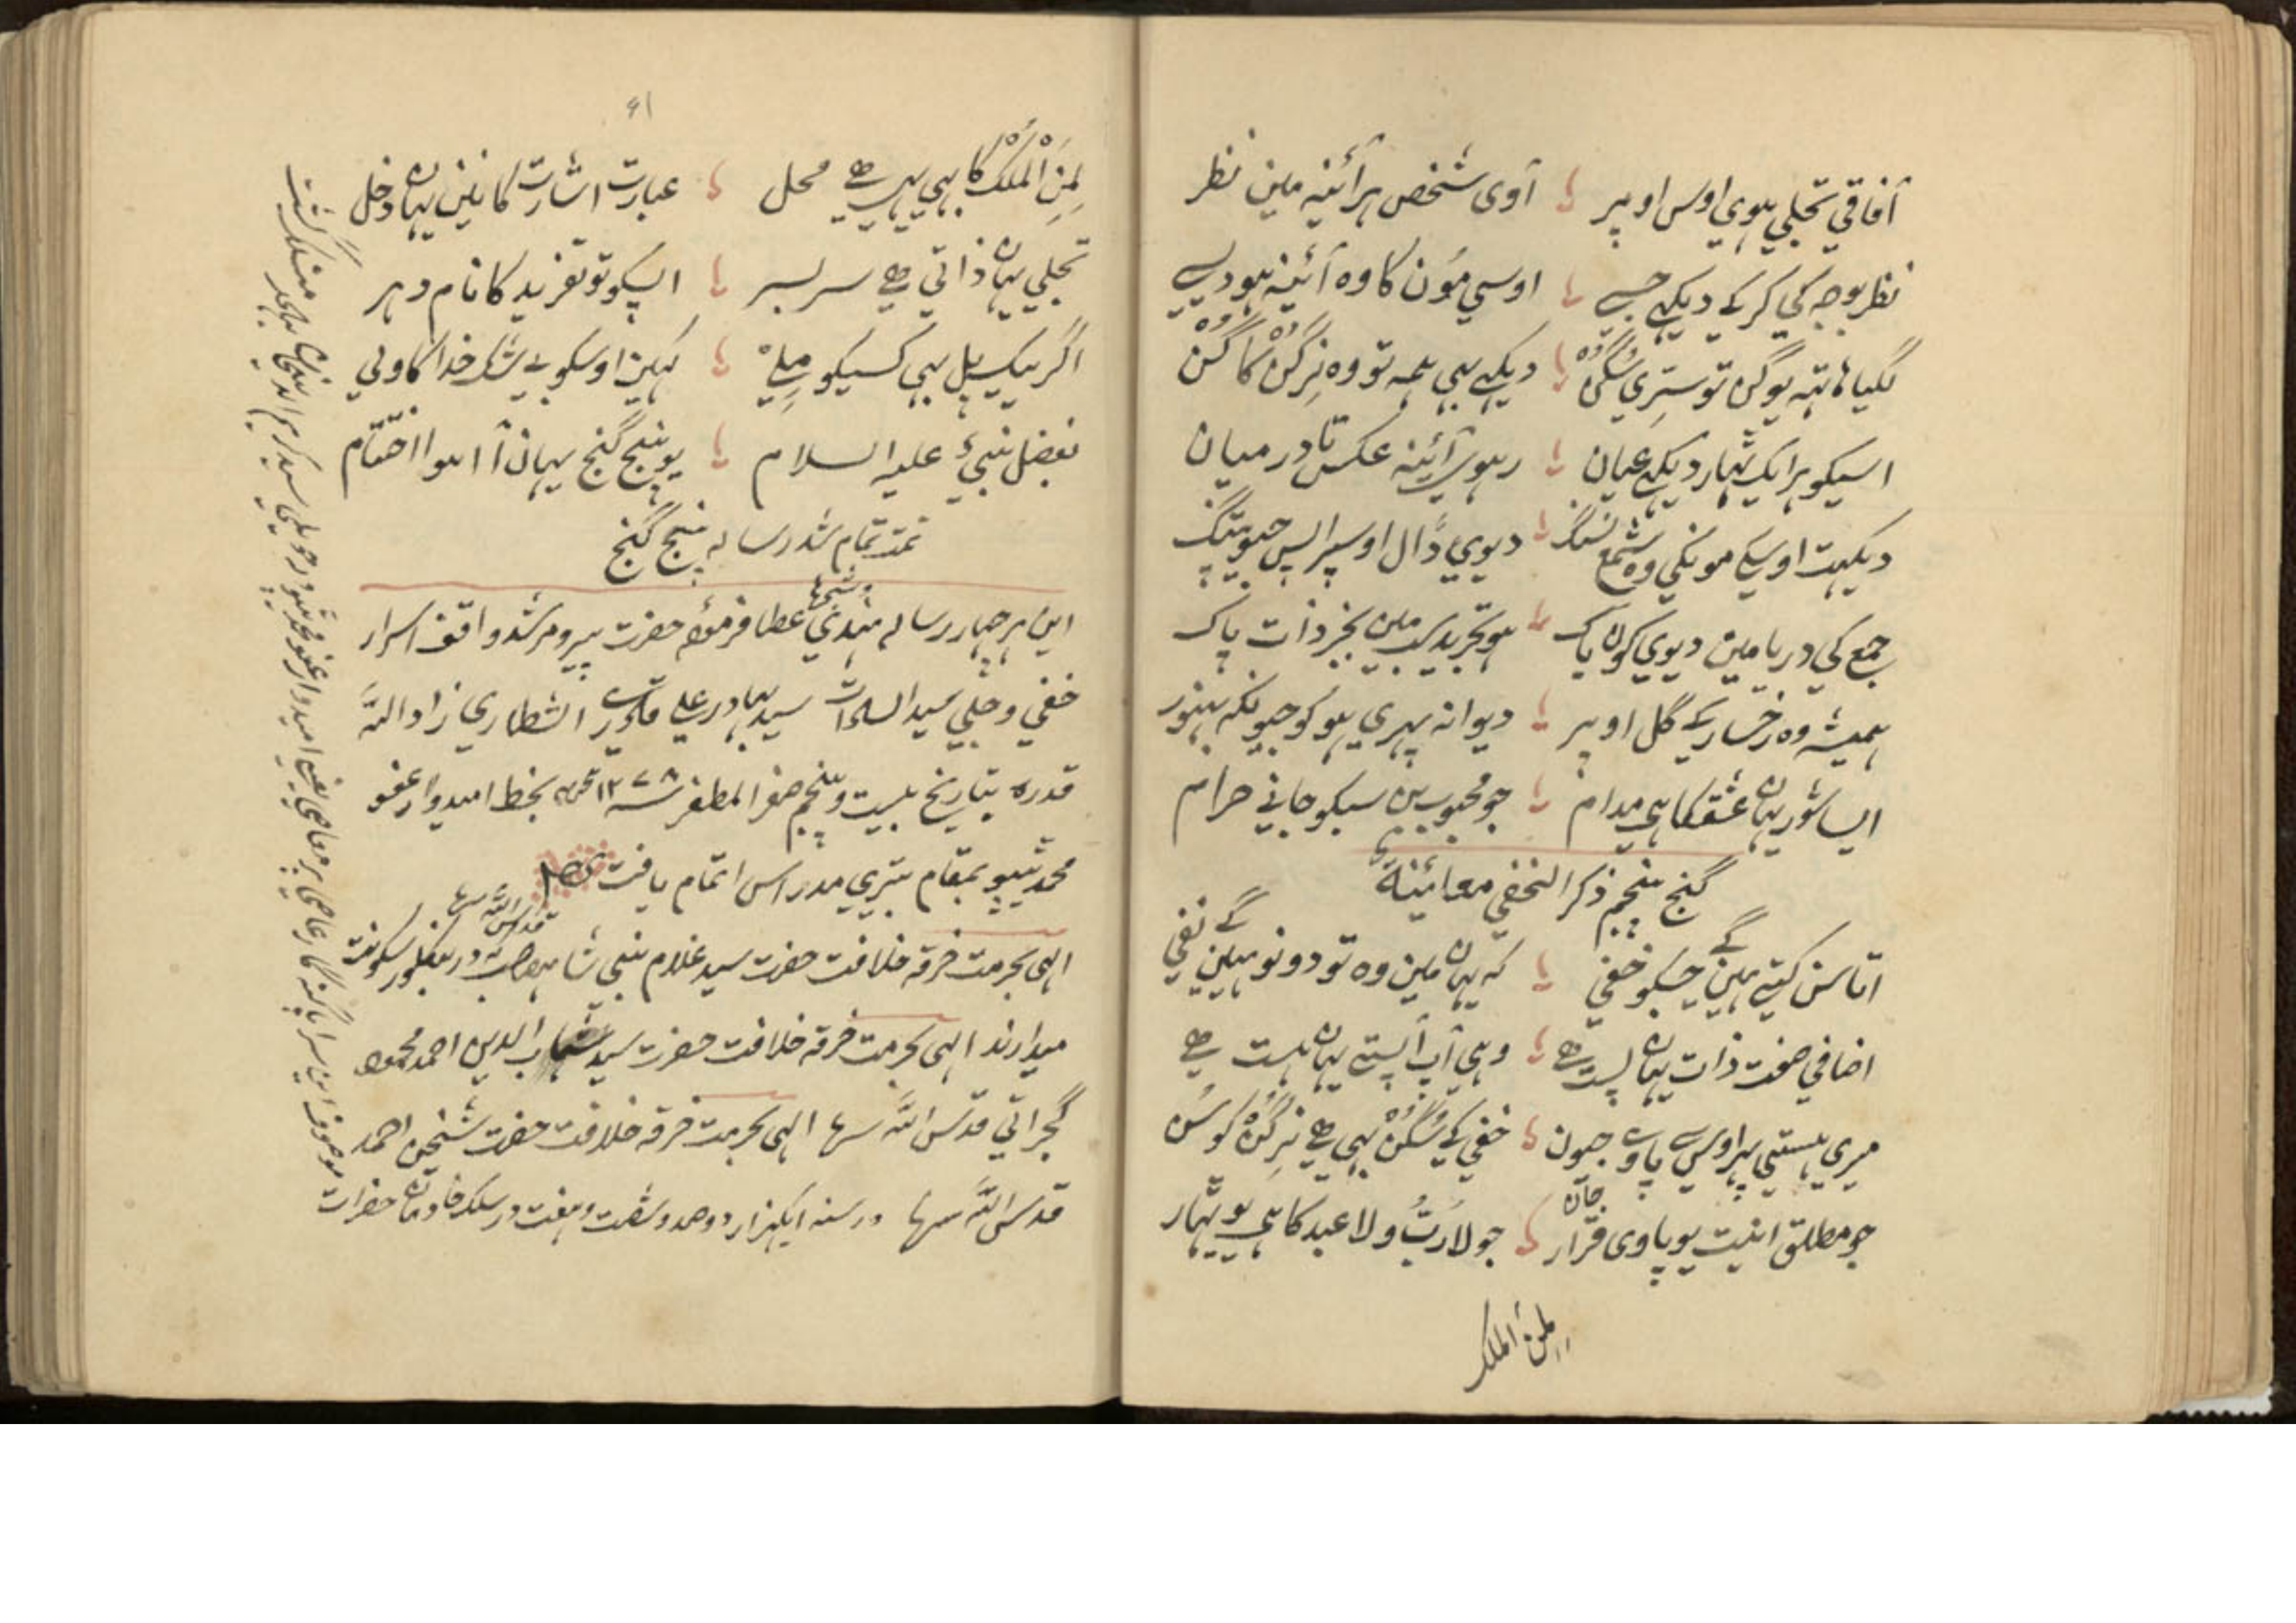 آفاقي تجلي ہوي اوس اوپر آوی شخص ہر آئینہ مین نظر
نظر بوجہ کي کر کے دیکہے جسے اوسي مؤن کا وہ آئینہ ہو دسے
لگیا ہاتہ یو گن تو ستری سگن دیکہے بہی ہمہ تو وہ نِرگن کا گن
اسیکو ہر ایک ٹہار دیکہے عیان رہوے آئینہ عکس تا درمیان
دیکہت اوسکے مونکي وہ شمع دیوي ڈال اوسپر اپس جیو پتنگ
جمع کي دریا مین دیوي کون پاک ہو تجرید سب مین بجز ذات پاک
ہمیشہ وہ رخسار کے گل اوپر دیوانہ پہري ہو کو جیونکہ بہنور
ایسا شور یہان عشق کا ہی مدام جو محبوب بن سبکو جانے حرام
گنج پنجم ذکر الخفي معائنة
اتا سن کتے ہین جسکو خفي کہ یہان مین وہ تو دونو ہیین نفي
اضافي صفت ذات یہان پست ہے وہي آپ آپستے یہان ہست ہے
میري ہستي پر اوسے پاوے جون خفي کے سگن بہي ہے نِرگن کو سن
جو مطلق انیت یو پاوی قرار جان جو لا رب ولا عبد کا ہی یو ٹہار
لمن الملک
۶۱
لِمَنِ الْمُلْكُ کا بہي یہي ہے محل عبارت اشارت کا نین یہان دخل
تجلي یہان ذاتي ہے سر بسر اسیکو تو تفرید کا نام دہر
اگر یک پل بہي کسیکو مِلے کہین اوسکو بے شک خدا کا ولي
بفضل نبيّ علیہ السلام یو پنج گنج یہان آ ہوا اختتام
تمت تمام شد رسالہ پنج گنج
این ہر چہار رسالہ ہندي عطا فرمودہ حضرت پیر و مرشد واقف اسرار
خفي و جلي سید السادات سید بہادر علي قادری الشطاري زاد اللہ
قدرہ بتاریخ بیست و پنجم صفر المظفر سنہ ۱۲۷۸ ہجریہ بخط امیدوار عفو
محمد ٹیپو بمقام مدراس اتمام یافت
الہی بحرمت خرقہ خلافت حضرت سید غلام نبی شاہ صاحب قدس اللہ سرہ کہ در بنگلور سکونت
میدارند الہی بحرمت خرقہ خلافت حضرت سید شہاب الدین احمد محمود
گجراتي قدس اللہ سرہا الہی بحرمت خرقہ خلافت حضرت شیخن احمد
قدس اللہ سرہا در سنہ ایکہزار دو صد و شصت و ہفت در سلک خادمان حضرات
موصوف این سراپا گنہگار عاصي پر معاصي یعني امیدوار عفو محمد ٹیپو منسلک گشت